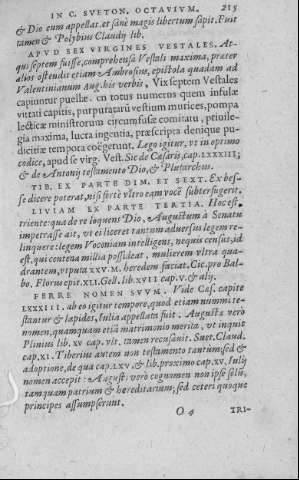 IN C. SVETON. OCTAVIVM. 215
& Dio eum appellat, et sanè magis libertum sapit. Fuit
tamen & Polybius Claudij lib.
APVD SEX VIRGINES VESTALES. At-
qui septem fuisse, comprehensa Vestali maxima, præter
alios ostendit etiam Ambrosius, epistola quadam ad
Valentinianum Aug. his verbis. Vix septem Vestales
capiuntur puellæ. en totus numerus quem infulæ
vittati capitis, purpuratarū vestium murices, pompa
lecticæ ministrorum circumfusæ comitatu, priuile-
gia maxima, lucra ingentia, præscripta denique pu-
dicitiæ tempora coëgerunt. Lego igitur, vt in optimo
codice, apud se virg. Vest. Sic de Cæsaris, cap. LXXXIII;
& de Antonij testamento Dio, & Plutarchus.
TIB. EX PARTE DIM. ET SEXT. Ex bes-
se dicere poterat, nisi fortè vltro eam vocē subterfugeret.
LIVIAM EX PARTE TERTIA. Hoc est,
triente: qua de re loquens Dio, Augustum à Senatu
impetrasse ait, vt ei liceret tantum aduersus legem re-
linquere: legem Voconiam intelligens, nequis census, id
est, qui centena millia possideat, mulierem vltra qua-
drantem, vtputa XXV.M. heredem faciat. Cic. pro Bal-
bo. Florus epit. XLI. Gell. lib. XVII cap. V. & alij.
FERRE NOMEN SVVM. Vide Cæs. capite
LXXXIII. ab eo igitur tempore, quod etiam nummi te-
stantur & lapides, Iulia appellata fuit. Augusta verò
nomen, quamquam etiā matrimonio merita, vt inquit
Plinius lib. XV cap. vlt. tamen recusauit. Suet. Claud.
cap. XI. Tiberius autem non testamento tantùm, sed &
adoptione, de qua cap. LXV, & lib. proximo cap. XV. Iulij
nomen accepit: Augusti verò cognomen non ipse solùm,
tamquam patrium & hereditarium; sed ceteri quoque
principes assumpserunt.
O 4 TRI-